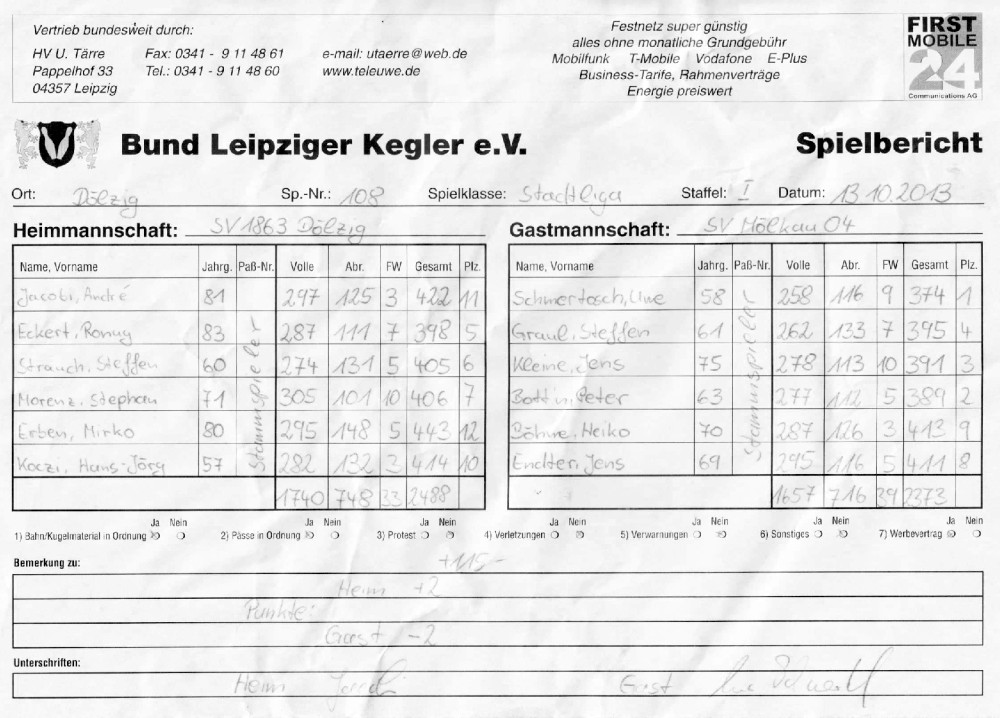 Vertrieb bundesweit durch:
HV U. Tärre Fax: 0341 - 9 11 48 61 e-mail: utaerre@web.de
Pappelhof 33 Tel.: 0341 - 9 11 48 60 www.teleuwe.de
04357 Leipzig
Festnetz super günstig
alles ohne monatliche Grundgebühr
Mobilfunk T-Mobile Vodafone E-Plus
Business-Tarife, Rahmenverträge
Energie preiswert
FIRST
MOBILE
24
Communications AG
Bund Leipziger Kegler e.V. Spielbericht
Ort: Dölzig Sp.-Nr.: 108 Spielklasse: Stadtliga Staffel: I Datum: 13.10.2013
Heimmannschaft: SV 1863 Dölzig
Name, Vorname Jahrg. Paß-Nr. Volle Abr. FW Gesamt Plz.
Jacobi, André 81 297 125 3 422 11
Eckert, Ronny 83 287 111 7 398 5
Strauch, Steffen 60 274 131 5 405 6
Morenz, Stephan 71 305 101 10 406 7
Erben, Mirko 80 295 148 5 443 12
Koczi, Hans-Jörg 57 282 132 3 414 10
Stammspieler
1740 748 33 2488
Gastmannschaft: SV Mölkau 04
Name, Vorname Jahrg. Paß-Nr. Volle Abr. FW Gesamt Plz.
Schmertosch, Uwe 58 258 116 9 374 1
Graul, Steffen 61 262 133 7 395 4
Kleine, Jens 75 278 113 10 391 3
Bottin, Peter 63 277 112 5 389 2
Böhne, Heiko 70 287 126 3 413 9
Endter, Jens 69 295 116 5 411 8
Stammspieler
1657 716 39 2373
Ja Nein Ja Nein Ja Nein Ja Nein Ja Nein Ja Nein Ja Nein
1) Bahn/Kugelmaterial in Ordnung 2) Pässe in Ordnung 3) Protest 4) Verletzungen 5) Verwarnungen 6) Sonstiges 7) Werbevertrag
Bemerkung zu: +115-
Heim +2
Punkte:
Gast -2
Unterschriften:
Heim Gast